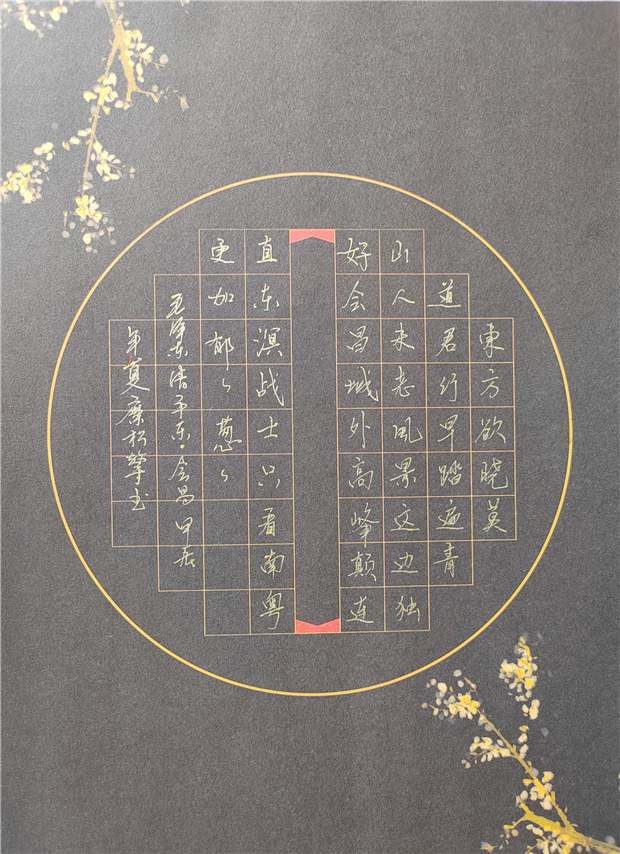 東方欲晓莫
道君行早踏遍青
山人未老風景这边独
好会昌城外高峰颠连
直东溟战士只看南粤
更加郁々葱々
毛泽东清平乐·会昌 甲辰
年夏廉松擎书